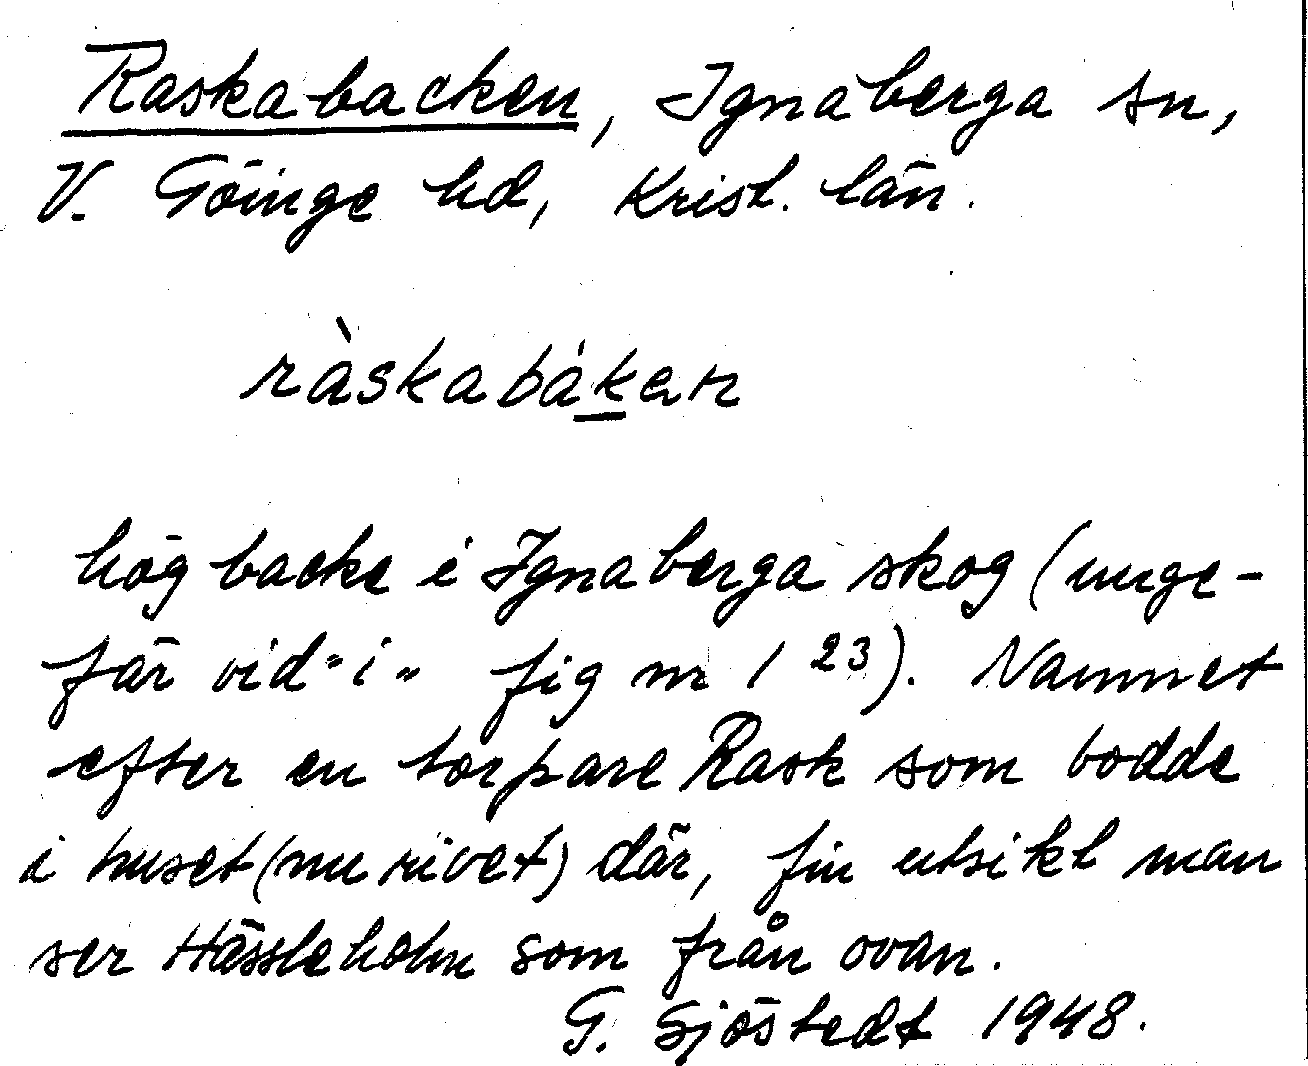 Raskabacken, Ignaberga sn,
V. Göinge hd, Krist. län.
ràskabáken
hög backe i Ignaberga skog (unge-
fär vid "i" fig nr 1 23). Namnet
efter en torpare Rask som bodde
i huset (nu rivet) där, fin utsikt man
ser Hässleholm som från ovan.
G. Sjöstedt 1948.